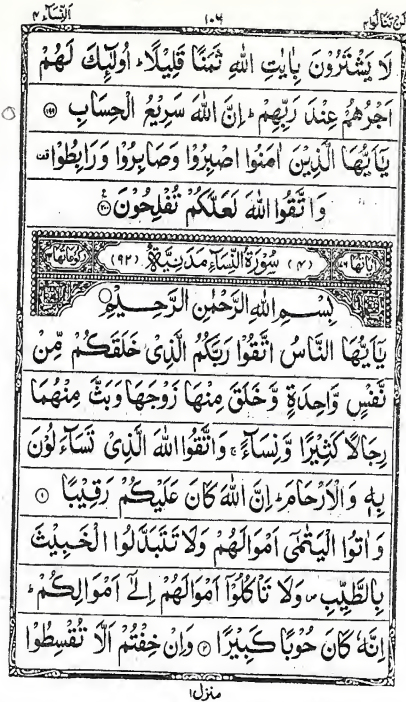 النسآء ٤ ١٠٦ لن تنالوا ٤
لَا يَشْتَرُوْنَ بِاٰيٰتِ اللّٰهِ ثَمَنًا قَلِيْلًا ؕ اُولٰٓئِكَ لَهُمْ
اَجْرُهُمْ عِنْدَ رَبِّهِمْ ؕ اِنَّ اللّٰهَ سَرِيْعُ الْحِسَابِ ۱۹۹
يٰۤاَيُّهَا الَّذِيْنَ اٰمَنُوا اصْبِرُوْا وَصَابِرُوْا وَرَابِطُوْا قف
وَاتَّقُوا اللّٰهَ لَعَلَّكُمْ تُفْلِحُوْنَ ۲۰۰
(٤) سُوْرَةُ النِّسَآءِ مَدَنِيَّةٌ (٩٢)
بِسْمِ اللّٰهِ الرَّحْمٰنِ الرَّحِيْمِ
يٰۤاَيُّهَا النَّاسُ اتَّقُوْا رَبَّكُمُ الَّذِيْ خَلَقَكُمْ مِّنْ
نَّفْسٍ وَّاحِدَةٍ وَّخَلَقَ مِنْهَا زَوْجَهَا وَبَثَّ مِنْهُمَا
رِجَالًا كَثِيْرًا وَّنِسَآءً ۚ وَاتَّقُوا اللّٰهَ الَّذِيْ تَسَآءَلُوْنَ
بِهٖ وَالْاَرْحَامَ ؕ اِنَّ اللّٰهَ كَانَ عَلَيْكُمْ رَقِيْبًا ۱
وَاٰتُوا الْيَتٰمٰٓى اَمْوَالَهُمْ وَلَا تَتَبَدَّلُوا الْخَبِيْثَ
بِالطَّيِّبِ ۪ وَلَا تَاْكُلُوْۤا اَمْوَالَهُمْ اِلٰٓى اَمْوَالِكُمْ ؕ
اِنَّهٗ كَانَ حُوْبًا كَبِيْرًا ۲ وَاِنْ خِفْتُمْ اَلَّا تُقْسِطُوْا
منزل ۱